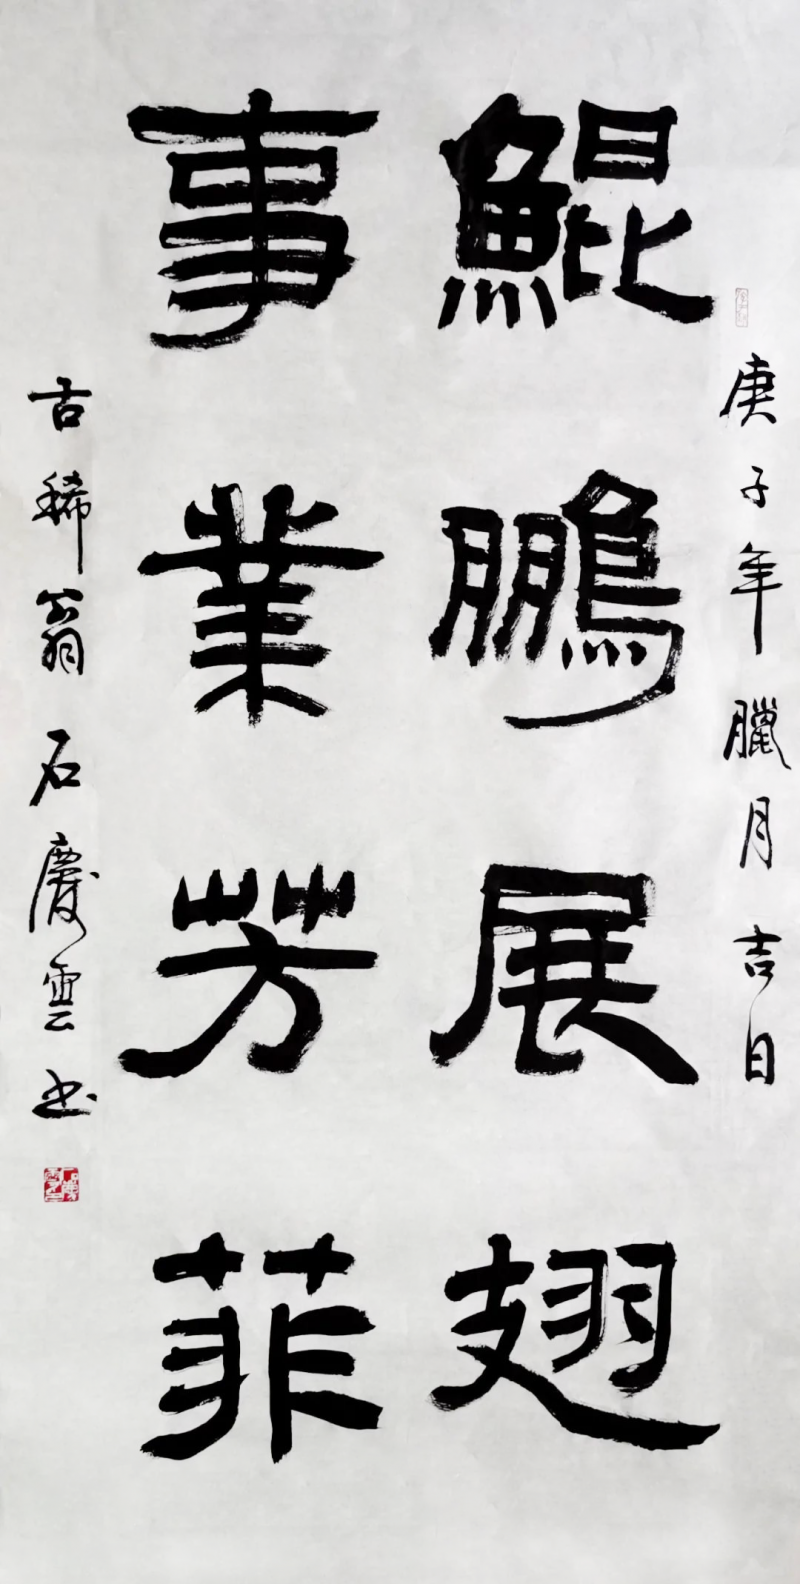 庚子年臘月吉日
鯤鵬展翅
事業芳菲
古稀翁石慶雲书